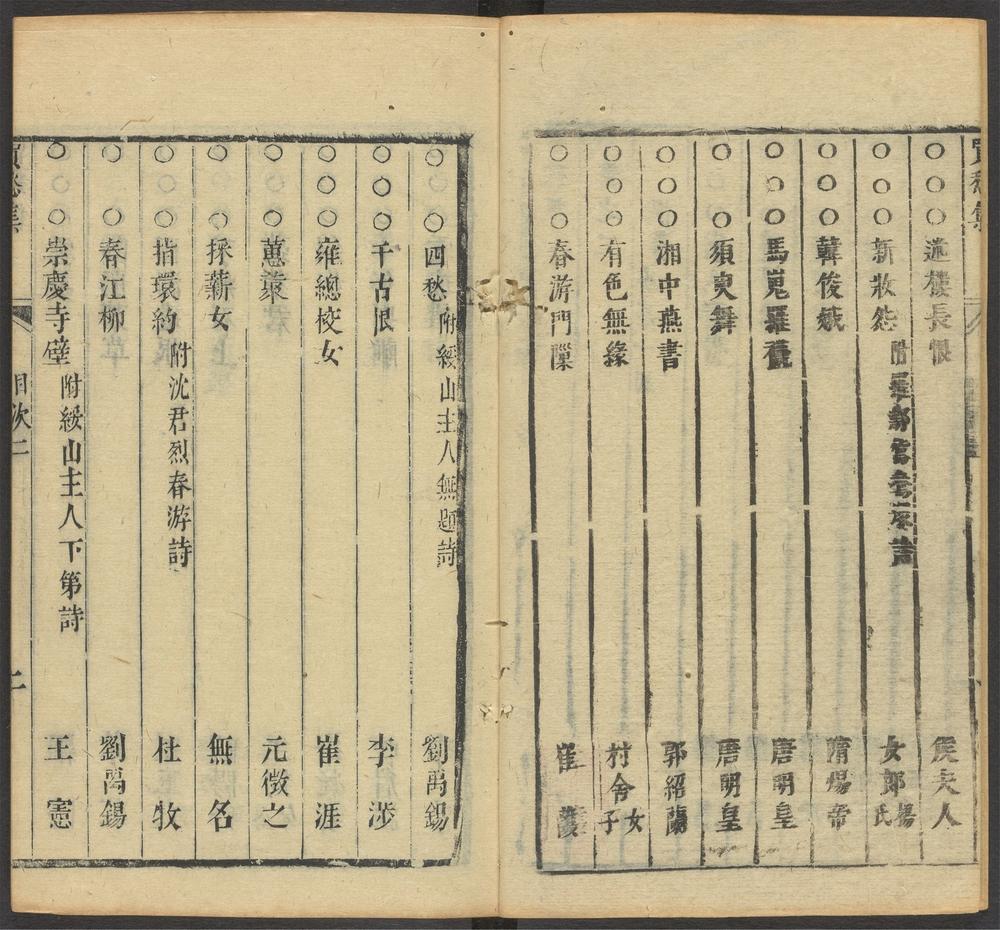 ○○○迷樓長恨 侯夫人
○○○新妝怨 附 女郎楊氏
○○○韓俊娥 隋煬帝
○○○馬嵬羅襪 唐明皇
○○須臾舞 唐明皇
○○○湘中燕書 郭紹蘭
○○○有色無緣 村舍女子
○○春游門隙 崔護
○○○四愁 附緩山主人無題詩 劉禹錫
○○○千古恨 李涉
○○○雍總校女 崔涯
○○蕙叢 元微之
○○採薪女 無名
○○○指環約 附沈君烈春游詩 杜牧
○○春江柳 劉禹錫
○○○崇慶寺壁 附緩山主人下第詩 王憲
買愁集
目次二
二